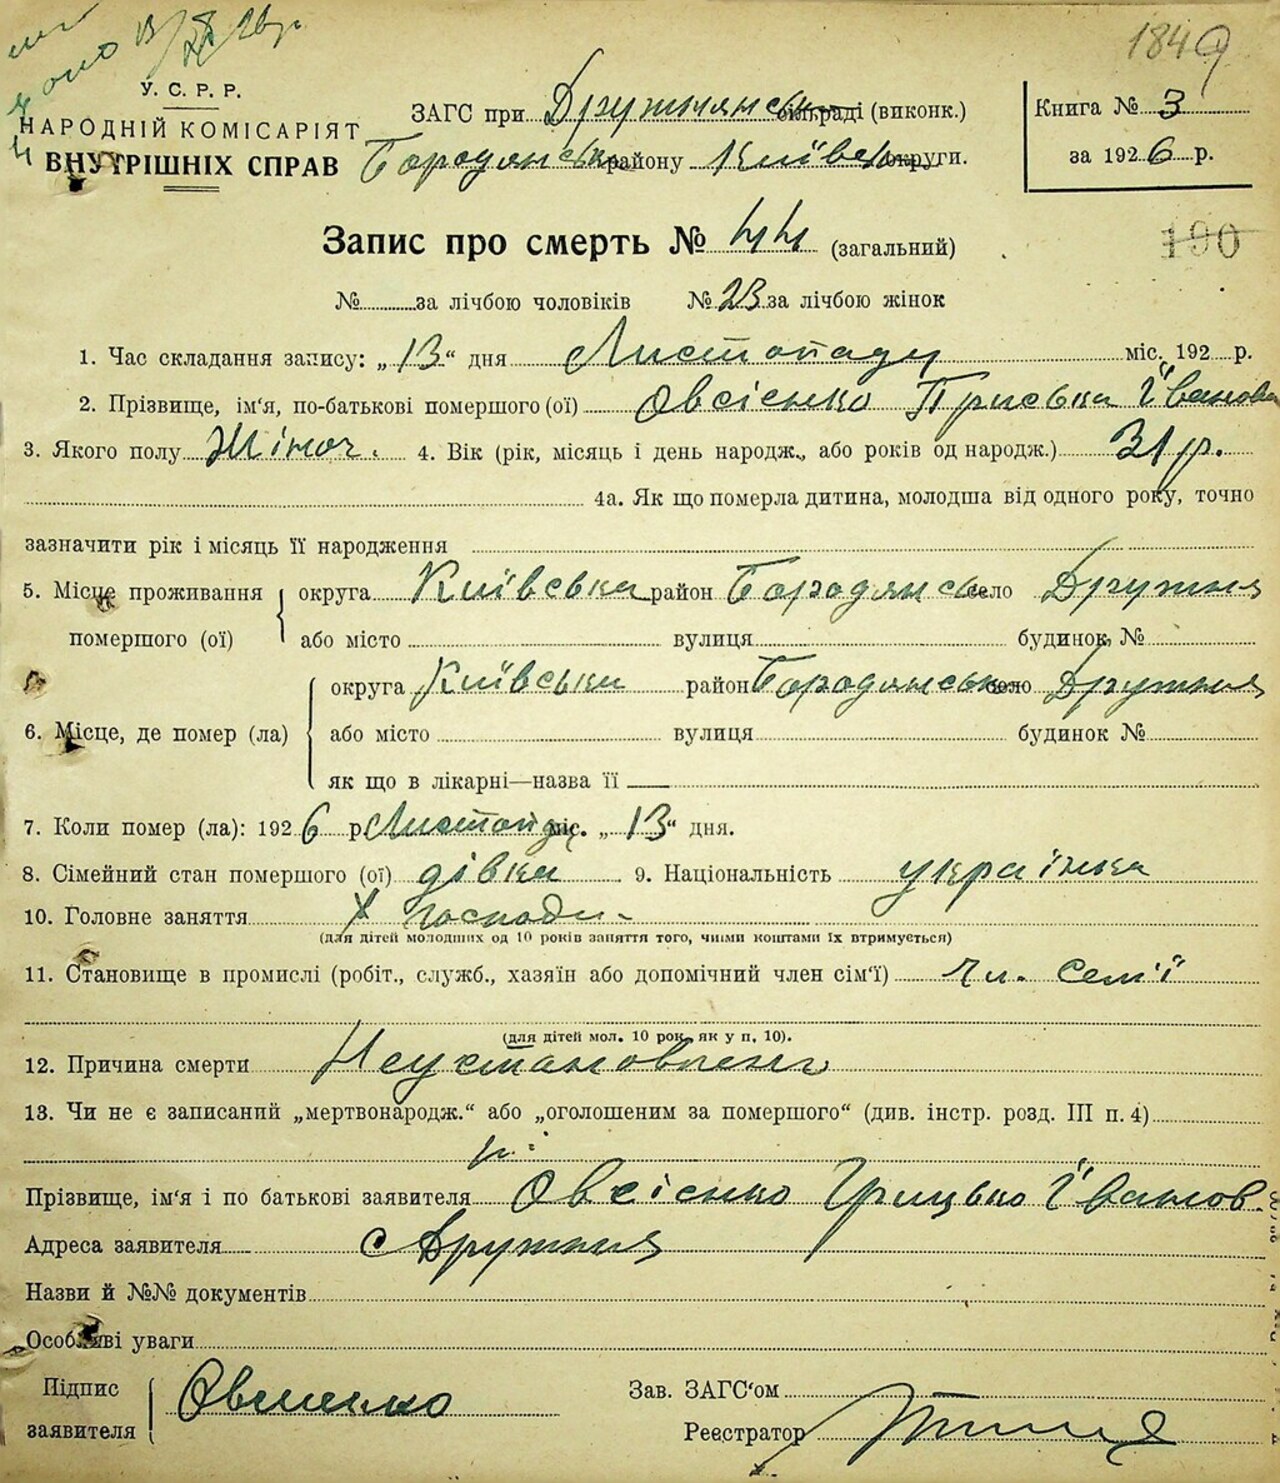 1849
У. С. Р. Р.
НАРОДНІЙ КОМІСАРІЯТ
ВНУТРІШНІХ СПРАВ
ЗАГС при Дружнянськ сільраді (виконк.)
Бородянськ району Київськ округи.
Книга № 3
за 1926 р.
190
Запис про смерть № 44 (загальний)
№ за лічбою чоловіків № 23 за лічбою жінок
1. Час складання запису: „13“ дня Листопаду міс. 192 р.
2. Прізвище, ім'я, по-батькові помершого (ої) Овсієнко Приська Іванова
3. Якого полу Жіноч. 4. Вік (рік, місяць і день народж., або років од народж.) 31 р.
4а. Як що померла дитина, молодша від одного року, точно
зазначити рік і місяць її народження
5. Місце проживання помершого (ої) округа Київська район Бородянськ село Дружня
або місто вулиця будинок №
6. Місце, де помер (ла) округа Київська район Бородянськ село Дружня
або місто вулиця будинок №
як що в лікарні—назва її
7. Коли помер (ла): 1926 р. Листопаду міс. „13“ дня.
8. Сімейний стан помершого (ої) дівка 9. Національність українка
10. Головне заняття х господ.
(для дітей молодших од 10 років заняття того, чиїми коштами їх втримується)
11. Становище в промислі (робіт., служб., хазяїн або допомічний член сім'ї) чл. семї
(для дітей мол. 10 рок. як у п. 10).
12. Причина смерти Неустановлена
13. Чи не є записаний „мертвонародж.“ або „оголошеним за помершого“ (див. інстр. розд. III п. 4)
Прізвище, ім'я і по батькові заявителя Овсієнко Грицько Іванов.
Адреса заявителя с Дружня
Назви й №№ документів
Особливі уваги
Підпис заявителя Овсиенко
Зав. ЗАГС'ом
Реєстратор